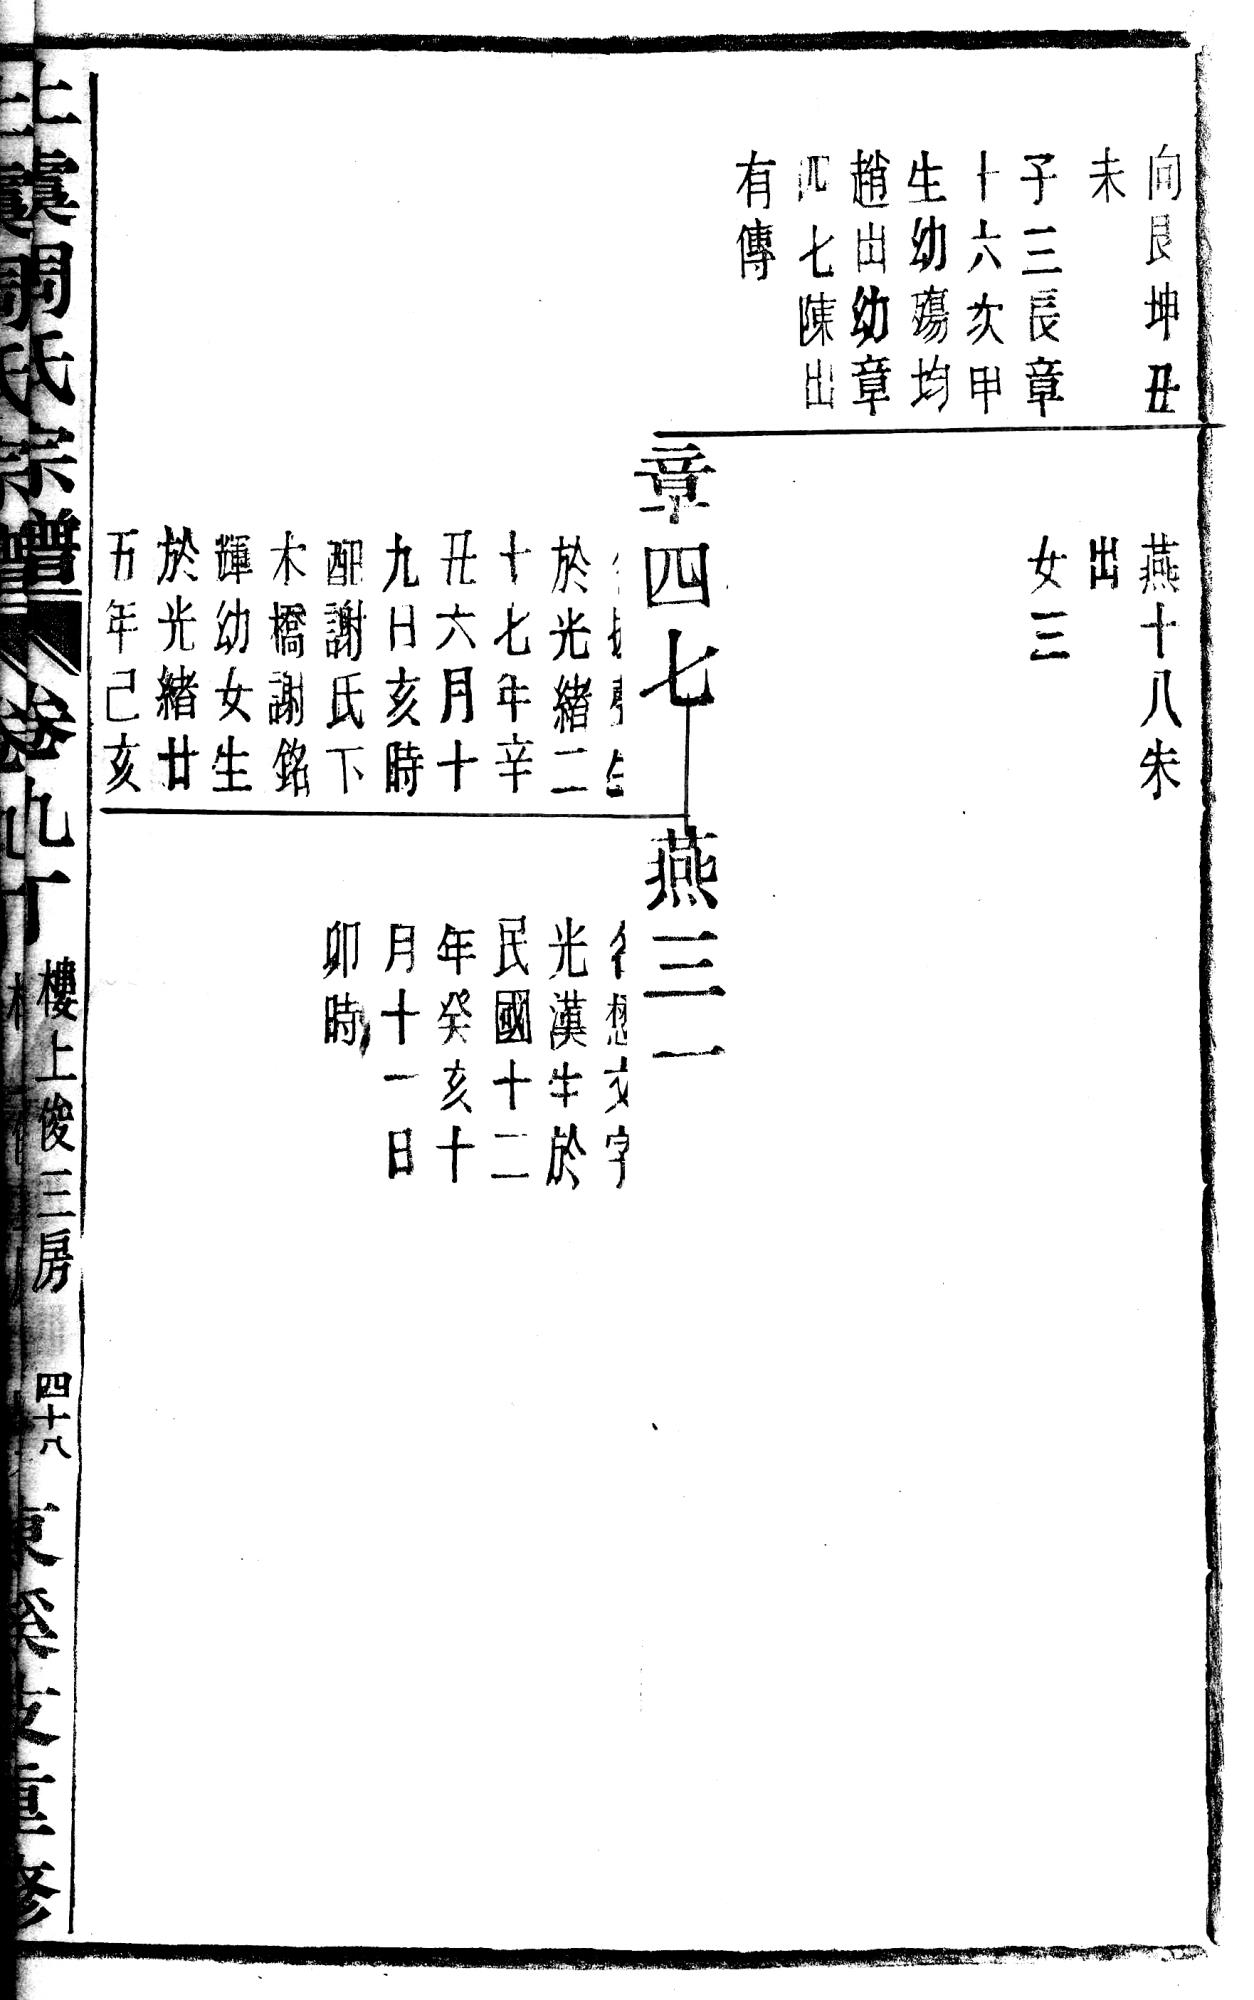 向艮坤丑
未
子三長章
十六次甲
生幼殤均
趙出幼章
四七陳出
有傳
燕十八朱
出
女三
章四七
於光緒二
十七年辛
丑六月十
九日亥時
配謝氏下
木橋謝銘
輝幼女生
於光緒廿
五年己亥
燕三一
文字
光漢生於
民國十二
年癸亥十
月十一日
卯時
上虞周氏宗譜 卷九丁 樓上俊三房 四十八 東溪支重修